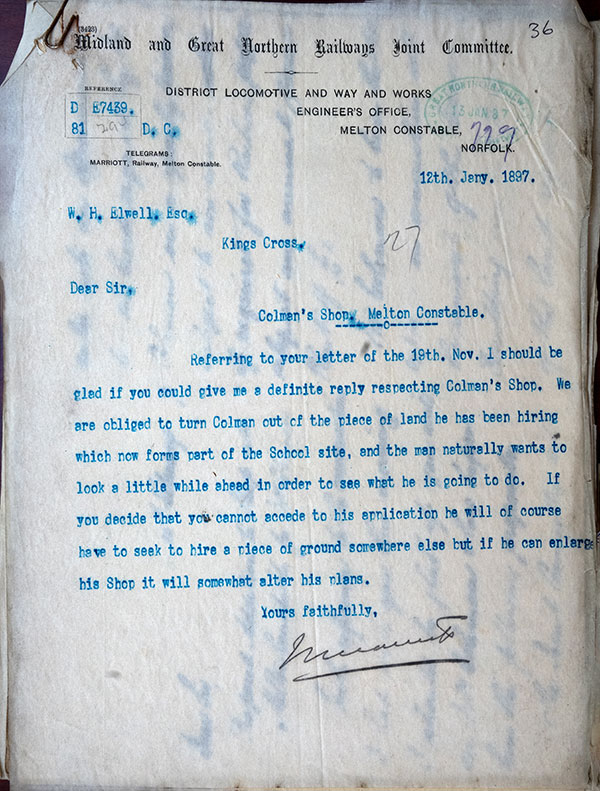 (3423)
36
Midland and Great Northern Railways Joint Committee.
REFERENCE
D E7439.
81 D. C.
DISTRICT LOCOMOTIVE AND WAY AND WORKS
ENGINEER'S OFFICE,
MELTON CONSTABLE,
NORFOLK.
13 JAN 97
729
TELEGRAMS:
MARRIOTT, Railway, Melton Constable.
12th. Jany. 1897.
W. H. Elwell. Esq.
Kings Cross.
27
Dear Sir,
Colman's Shop. Melton Constable.
Referring to your letter of the 19th. Nov. I should be
glad if you could give me a definite reply respecting Colman's Shop. We
are obliged to turn Colman out of the piece of land he has been hiring
which now forms part of the School site, and the man naturally wants to
look a little while ahead in order to see what he is going to do. If
you decide that you cannot accede to his application he will of course
have to seek to hire a piece of ground somewhere else but if he can enlarge
his Shop it will somewhat alter his plans.
Yours faithfully,